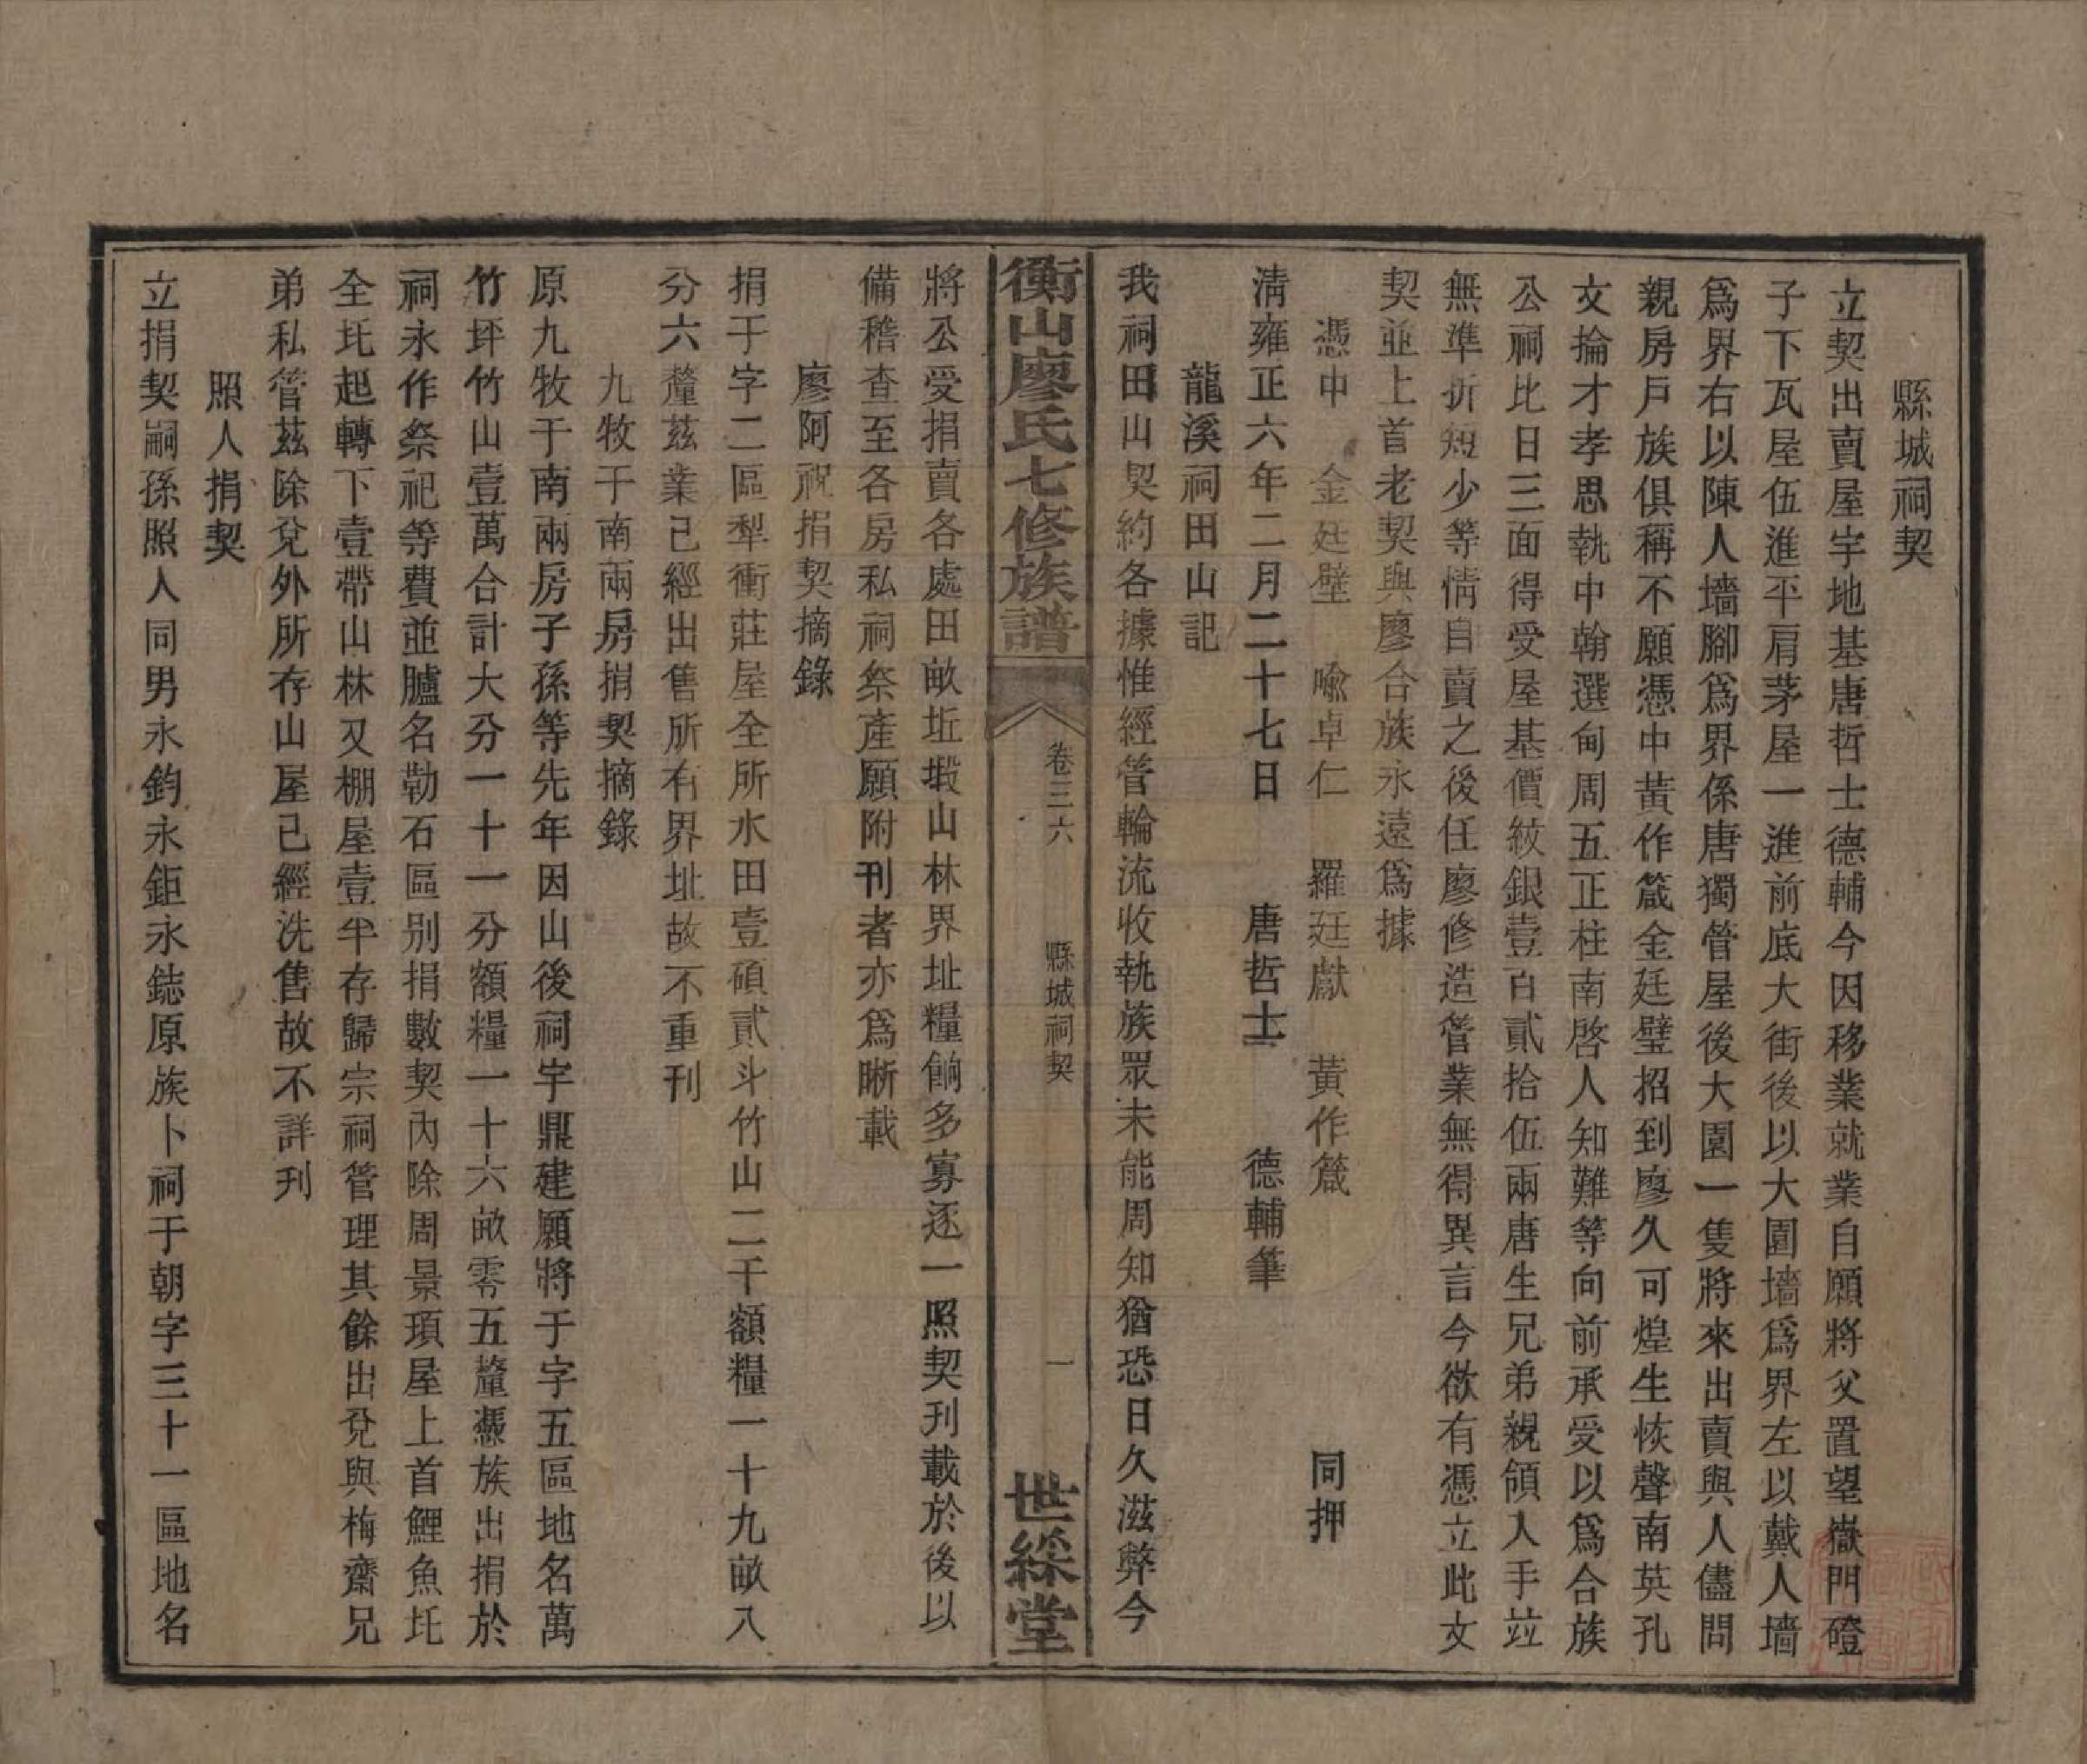 縣城祠契
立契出賣屋宇地基唐哲士德輔今因移業就業自願將父置望嶽門磴
子下瓦屋伍進平肩茅屋一進前底大街後以大園墻爲界左以戴人墻
爲界右以陳人墻腳爲界係唐獨管屋後大園一隻將來出賣與人儘問
親房戶族俱稱不願憑中黃作箴金廷璧招到廖久可煌生恢聲南英孔
文掄才孝思執中翰選甸周五正柱南啓人知難等向前承受以爲合族
公祠比日三面得受屋基價紋銀壹百貳拾伍兩唐生兄弟親領入手竝
無準折短少等情自賣之後任廖修造管業無得異言今欲有憑立此文
契並上首老契與廖合族永遠爲據
憑中　金廷璧　喻卓仁　羅廷獻　黃作箴　同押
淸雍正六年二月二十七日　唐哲士　德輔筆
龍溪祠田山記
我祠田山契約各據惟經管輪流收執族眾未能周知猶恐日久滋弊今
衡山廖氏七修族譜　卷三六　縣城祠契　一　世綵堂
將公受捐賣各處田畝坵塅山林界址糧餉多寡逐一照契刊載於後以
備稽查至各房私祠祭產願附刊者亦爲晰載
廖阿祝捐契摘錄
捐于字二區犁衝莊屋全所水田壹碩貳斗竹山二千額糧一十九畝八
分六釐茲業已經出售所有界址故不重刊
九牧于南兩房捐契摘錄
原九牧于南兩房子孫等先年因山後祠宇鼎建願將于字五區地名萬
竹坪竹山壹萬合計大分一十一分額糧一十六畝零五釐憑族出捐於
祠永作祭祀等費並臚名勒石區別捐數契內除周景頊屋上首鯉魚坵
全坵起轉下壹帶山林又棚屋壹半存歸宗祠管理其餘出兌與梅齋兄
弟私管茲除兌外所存山屋已經洗售故不詳刊
照人捐契
立捐契嗣孫照人同男永鈞永鉅永鋕原族卜祠于朝字三十一區地名